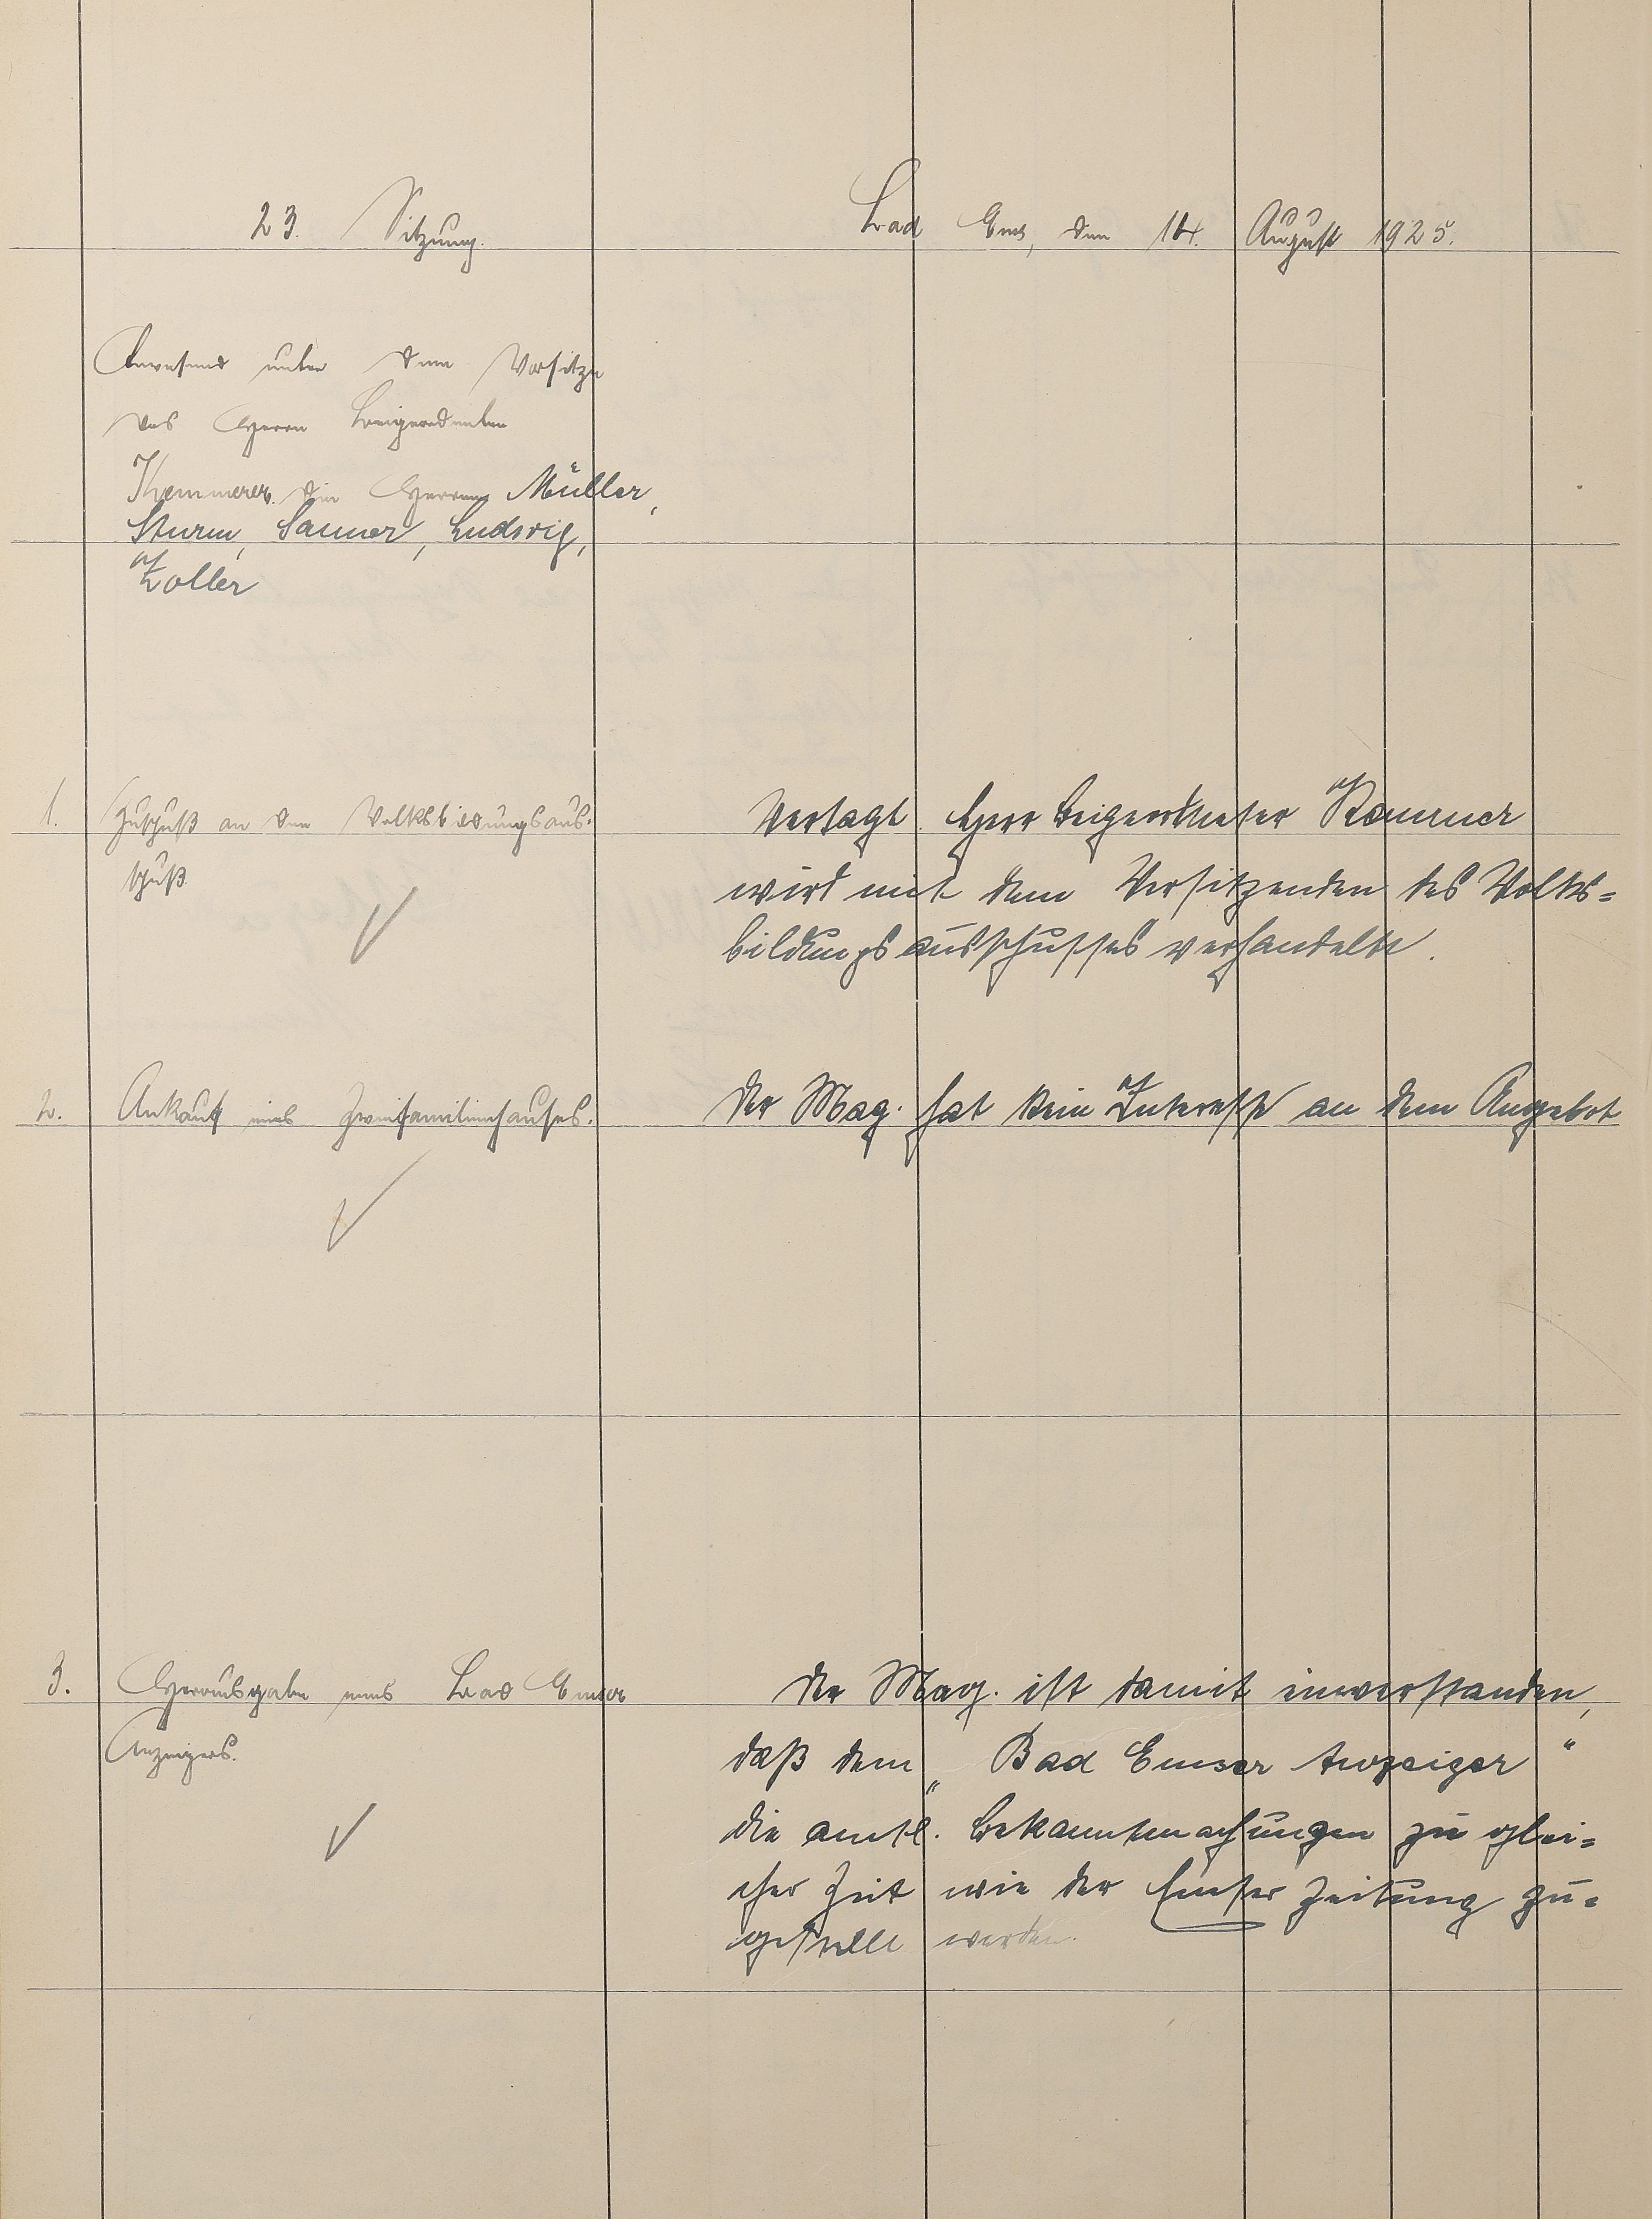 23. Sitzung.
Bad Ems, den 14. August 1925.
Anwesend unter dem Vorsitze
des Herrn Beigeordneten
Kemmerer die Herren Müller,
Sturm, Sauner, Ludwig,
Zoller
1. Zuschuß an den Volksbildungsaus-
schuß
Vertagt. Herr Beigeordneter
wird mit dem Vorsitzenden des Volks=
bildungsausschusses verhandeln.
2. Ankauf eines Zweifamilienhauses.
Der Mag. hat kein Interesse an dem Angebot
3. Herausgabe eines Bad Emser
Anzeigers.
Der Mag. ist damit einverstanden,
daß dem „Bad Emser Anzeiger“
die amtl. Bekanntmachungen zu glei=
cher Zeit wie der Emser Zeitung zu=
gestellt werden.